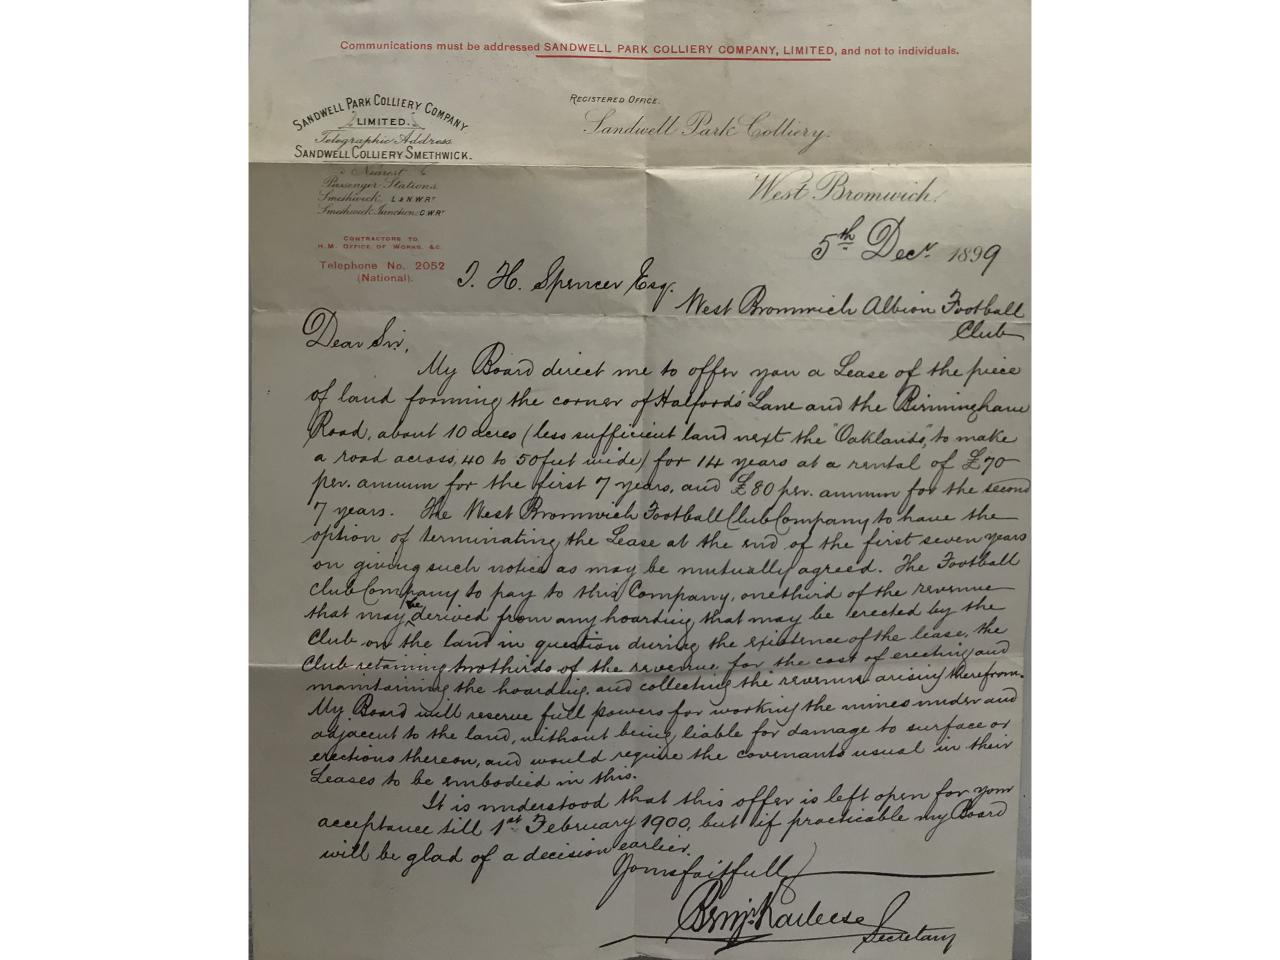 Communications must be addressed SANDWELL PARK COLLIERY COMPANY, LIMITED, and not to individuals.
SANDWELL PARK COLLIERY COMPANY
LIMITED.
Telegraphic Address
SANDWELL COLLIERY SMETHWICK.
Nearest
Passenger Stations
Smethwick L & N.W.Ry
Smethwick Junction G.W.Ry
CONTRACTORS TO
H.M. OFFICE OF WORKS, &c.
Telephone No. 2052
(National).
REGISTERED OFFICE.
Sandwell Park Colliery.
West Bromwich.
5th Decr 1899
T. H. Spencer Esq.
West Bromwich Albion Football
Club
Dear Sir,
My Board direct me to offer you a Lease of the piece
of land forming the corner of Halford's Lane and the Birmingham
Road, about 10 acres (less sufficient land next the "Oaklands", to make
a road across, 40 to 50 feet wide) for 14 years at a rental of £70
per. annum for the first 7 years, and £80 per. annum for the second
7 years. The West Bromwich Football Club Company to have the
option of terminating the Lease at the end of the first seven years
on giving such notice as may be mutually agreed. The Football
Club Company to pay to this Company, one third of the revenue
that may be derived from any hoarding that may be erected by the
Club on the land in question during the existence of the lease, the
Club retaining two thirds of the revenue for the cost of erecting and
maintaining the hoarding, and collecting the revenue arising therefrom.
My Board will reserve full powers for working the mines under and
adjacent to the land, without being liable for damage to surface or
erections thereon, and would require the covenants usual in their
Leases to be embodied in this.
It is understood that this offer is left open for your
acceptance till 1st February 1900, but if practicable my Board
will be glad of a decision earlier.
Yours faithfully
Benjn
Secretary